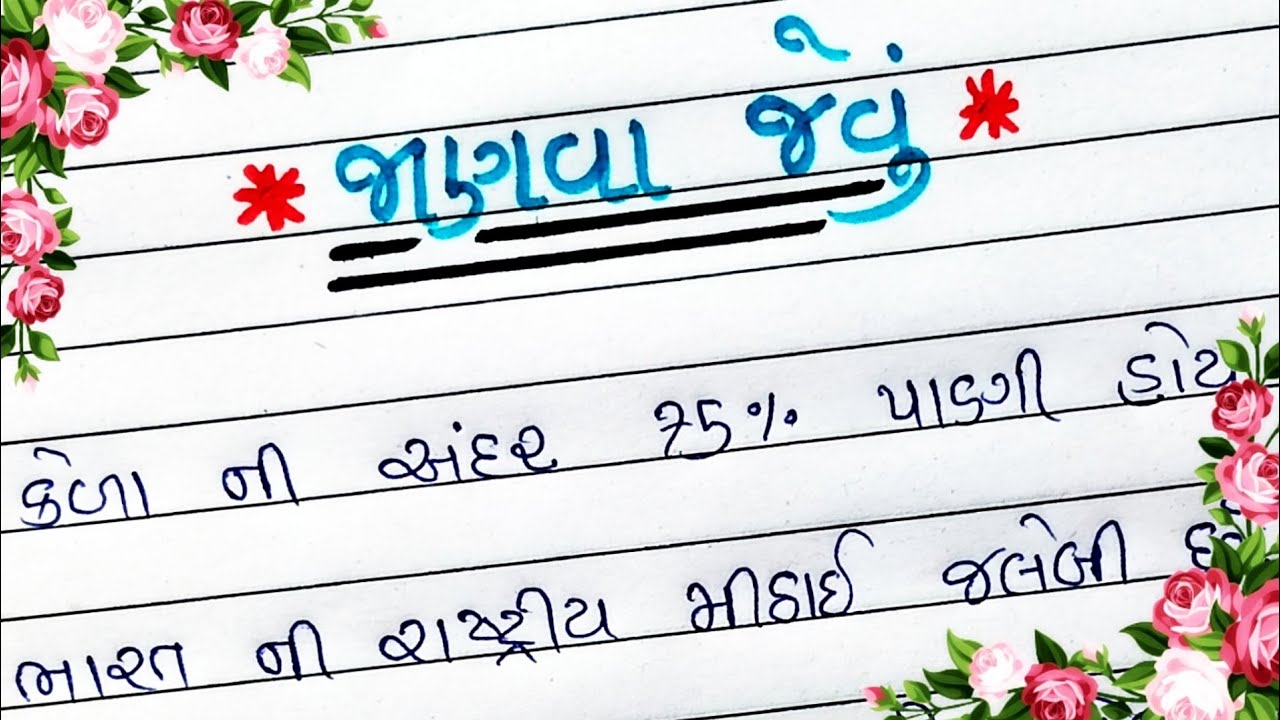 * જાણવા જેવું *
કેળા ની અંદર 75% પાણી હોય
ભારત ની રાષ્ટ્રીય મીઠાઈ જલેબી